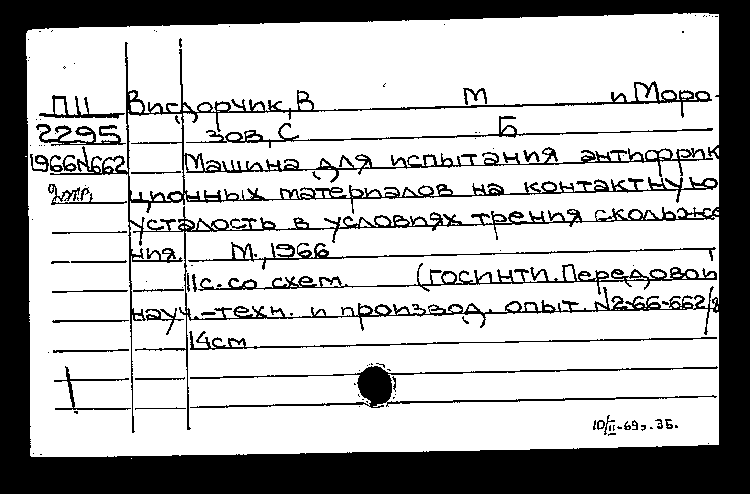 П11 Висдорчик, В М и Моро-
2295 зов, С Б
1966N662 Машина для испытания антифрик
ционных материалов на контактную
усталость в условиях трения скольже
ния. М., 1966
11с. со схем. (ГОСИНТИ. Передовой
науч.-техн. и производ. опыт. N2-66-662/8
14см.
10/II-69г. ЗБ.